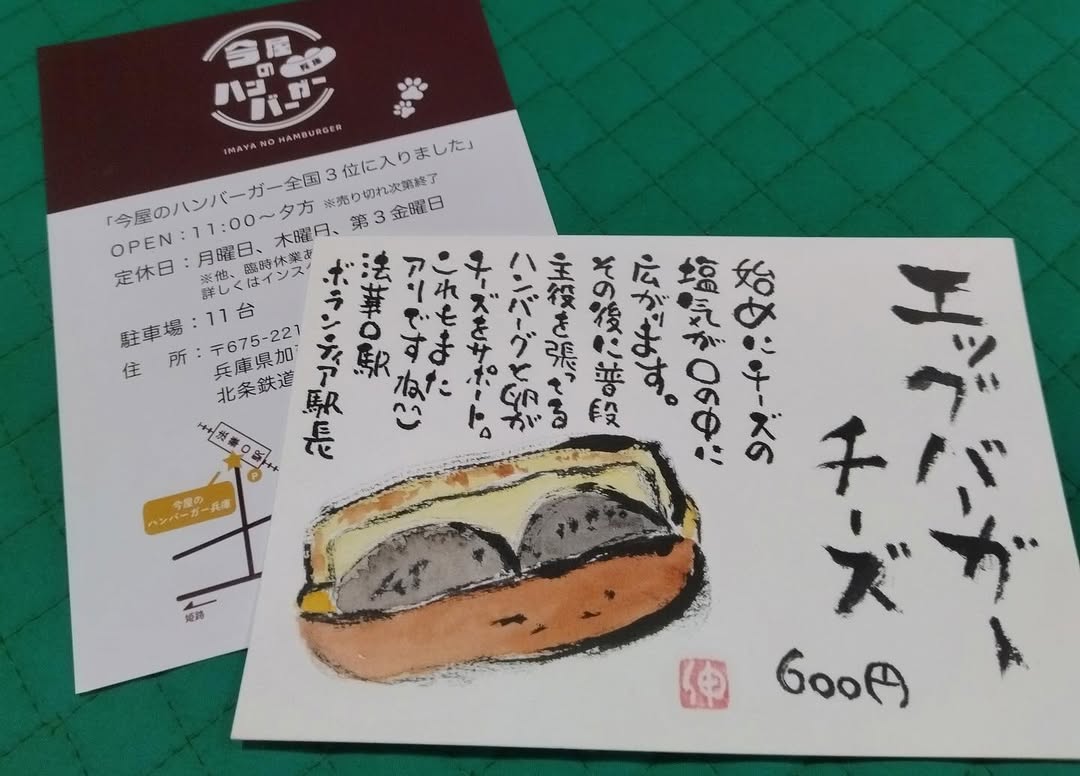 今屋
の
ハン
バーガー
兵庫
IMAYA NO HAMBURGER
「今屋のハンバーガー全国3位に入りました」
OPEN：11:00～夕方 ※売り切れ次第終了
定休日：月曜日、木曜日、第3金曜日
※他、臨時休業あ
詳しくはインス
駐車場：11台
住 所：〒675-221
兵庫県加
北条鉄道
法華口駅
P
今屋の
ハンバーガー兵庫
姫路
エッグバーガー
チーズ
600円
始めにチーズの
塩気が口の中に
広がります。
その後に普段
主役を張ってる
ハンバーグと卵が
チーズをサポート。
これもまた
アリですね
法華口駅
ボランティア駅長
伸